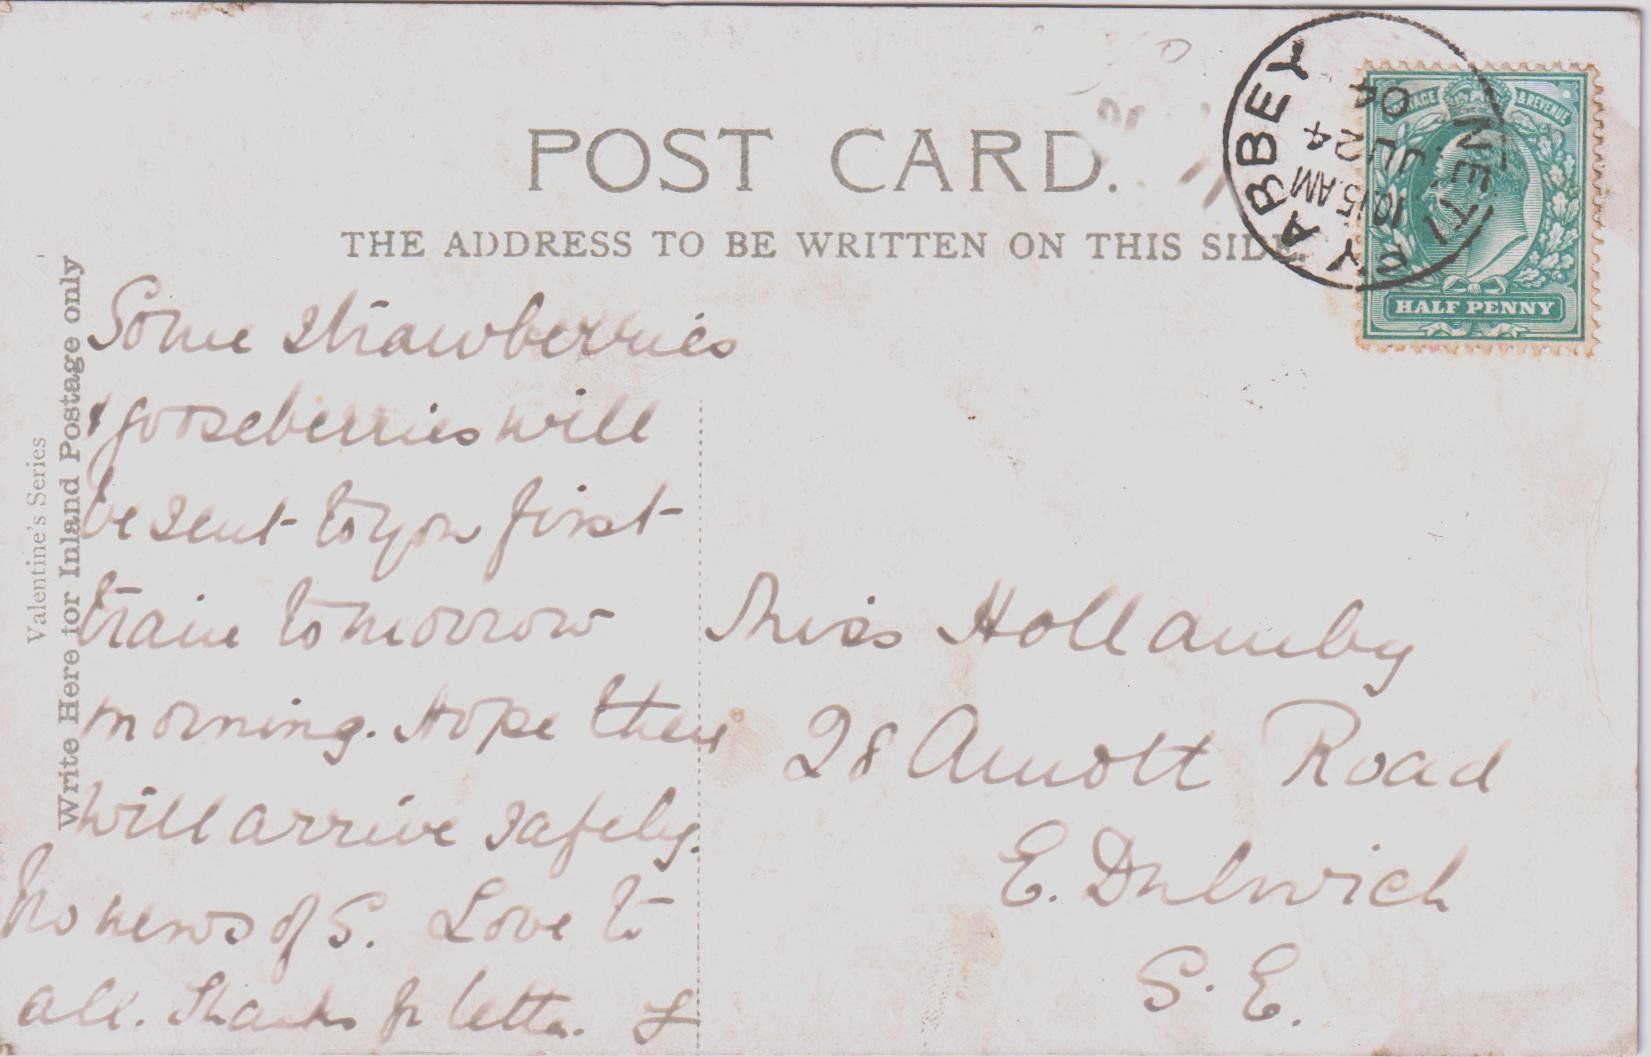 POST CARD.
THE ADDRESS TO BE WRITTEN ON THIS SIDE.
Valentine's Series
Write Here for Inland Postage only
POSTAGE & REVENUE
HALF PENNY
NETLEY ABBEY
10.15 AM
JL 24
04
Some strawberries
& gooseberries will
be sent to you first
train tomorrow
morning. Hope they
will arrive safely.
No news of S. Love to
all. Thanks for letter. L
Miss Hollamby
28 Arnott Road
E. Dulwich
S. E.